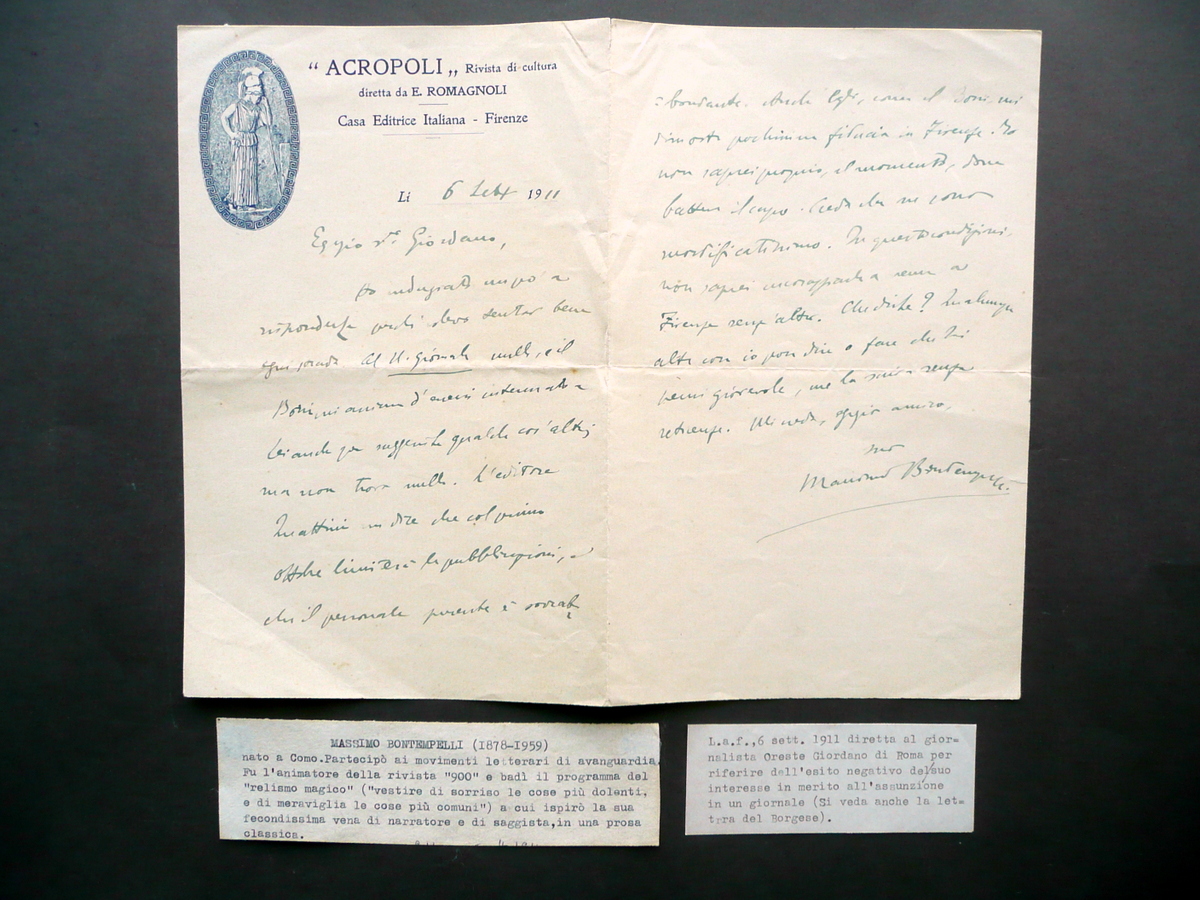 “ ACROPOLI „ Rivista di cultura
diretta da E. ROMAGNOLI
Casa Editrice Italiana - Firenze
Li 6 Sett 1911
Egregio Giordano,
Ho indugiato un po' a
risponderle perché devo sentir bene
ogni parola al N. Giornale nulla, e il
Boni, mi
Lei anche per suggerirle qualche cos'altro;
ma non trova nulla. L'editore
Mattini mi dice che col primo
ottobre limiterà le pubblicazioni, e
che il personale presente è sovrab
=bondante. Anch'Egli, come il Boni, mi
dimostra pochissima fiducia in Firenze. Io
non saprei proprio, al momento, dove
batter il capo. Creda che ne sono
mortificatissimo. In queste condizioni,
non saprei incoraggiarla a venire a
Firenze senz'altro. Che dirle? Qualunque
altra cosa io possa dire o fare che Le
sia giovevole, me la scriva senza
reticenze. Mi creda, egregio amico,
suo
Massimo Bontempelli.
MASSIMO BONTEMPELLI (1878-1959)
nato a Como.Partecipò ai movimenti letterari di avanguardia.
Fu l'animatore della rivista "900" e badì il programma del
"relismo magico" ("vestire di sorriso le cose più dolenti,
e di meraviglia le cose più comuni") a cui ispirò la sua
fecondissima vena di narratore e di saggista,in una prosa
classica.
L.a.f.,6 sett. 1911 diretta al gior=
nalista Oreste Giordano di Roma per
riferire dell'esito negativo del suo
interesse in merito all'assunzione
in un giornale (Si veda anche la let=
tera del Borgese).